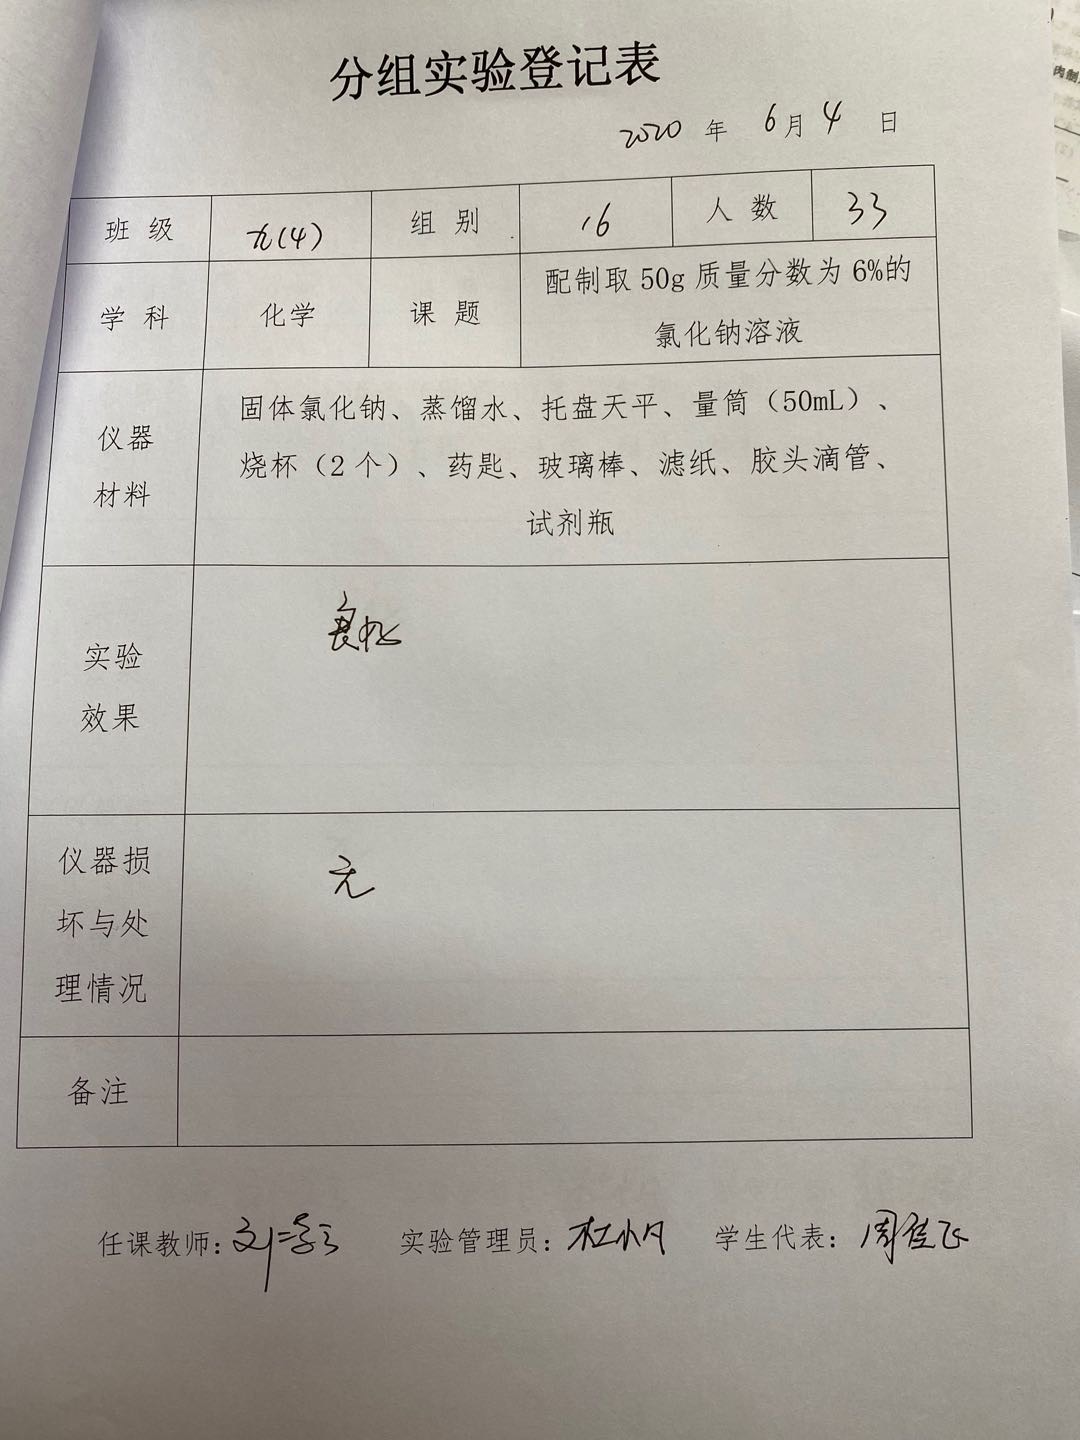 分组实验登记表
2020 年 6月 4 日
班 级 九(4) 组 别 16 人 数 33
配制取 50g 质量分数为 6%的
学 科 化学 课 题
氯化钠溶液
固体氯化钠、蒸馏水、托盘天平、量筒（50mL）、
仪器
烧杯（2 个）、药匙、玻璃棒、滤纸、胶头滴管、
材料
试剂瓶
良好
实验
效果
仪器损
无
坏与处
理情况
备注
任课教师: 实验管理员: 杜小凡 学生代表: 周佳飞